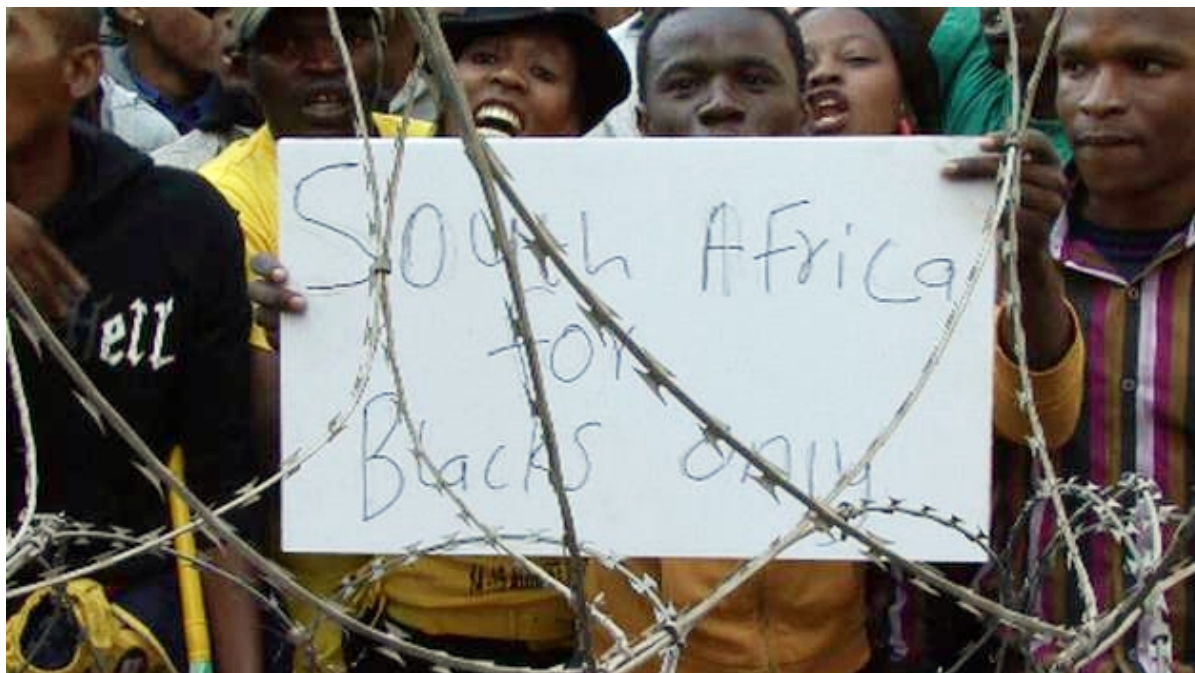 South Africa
for
Blacks only
ell